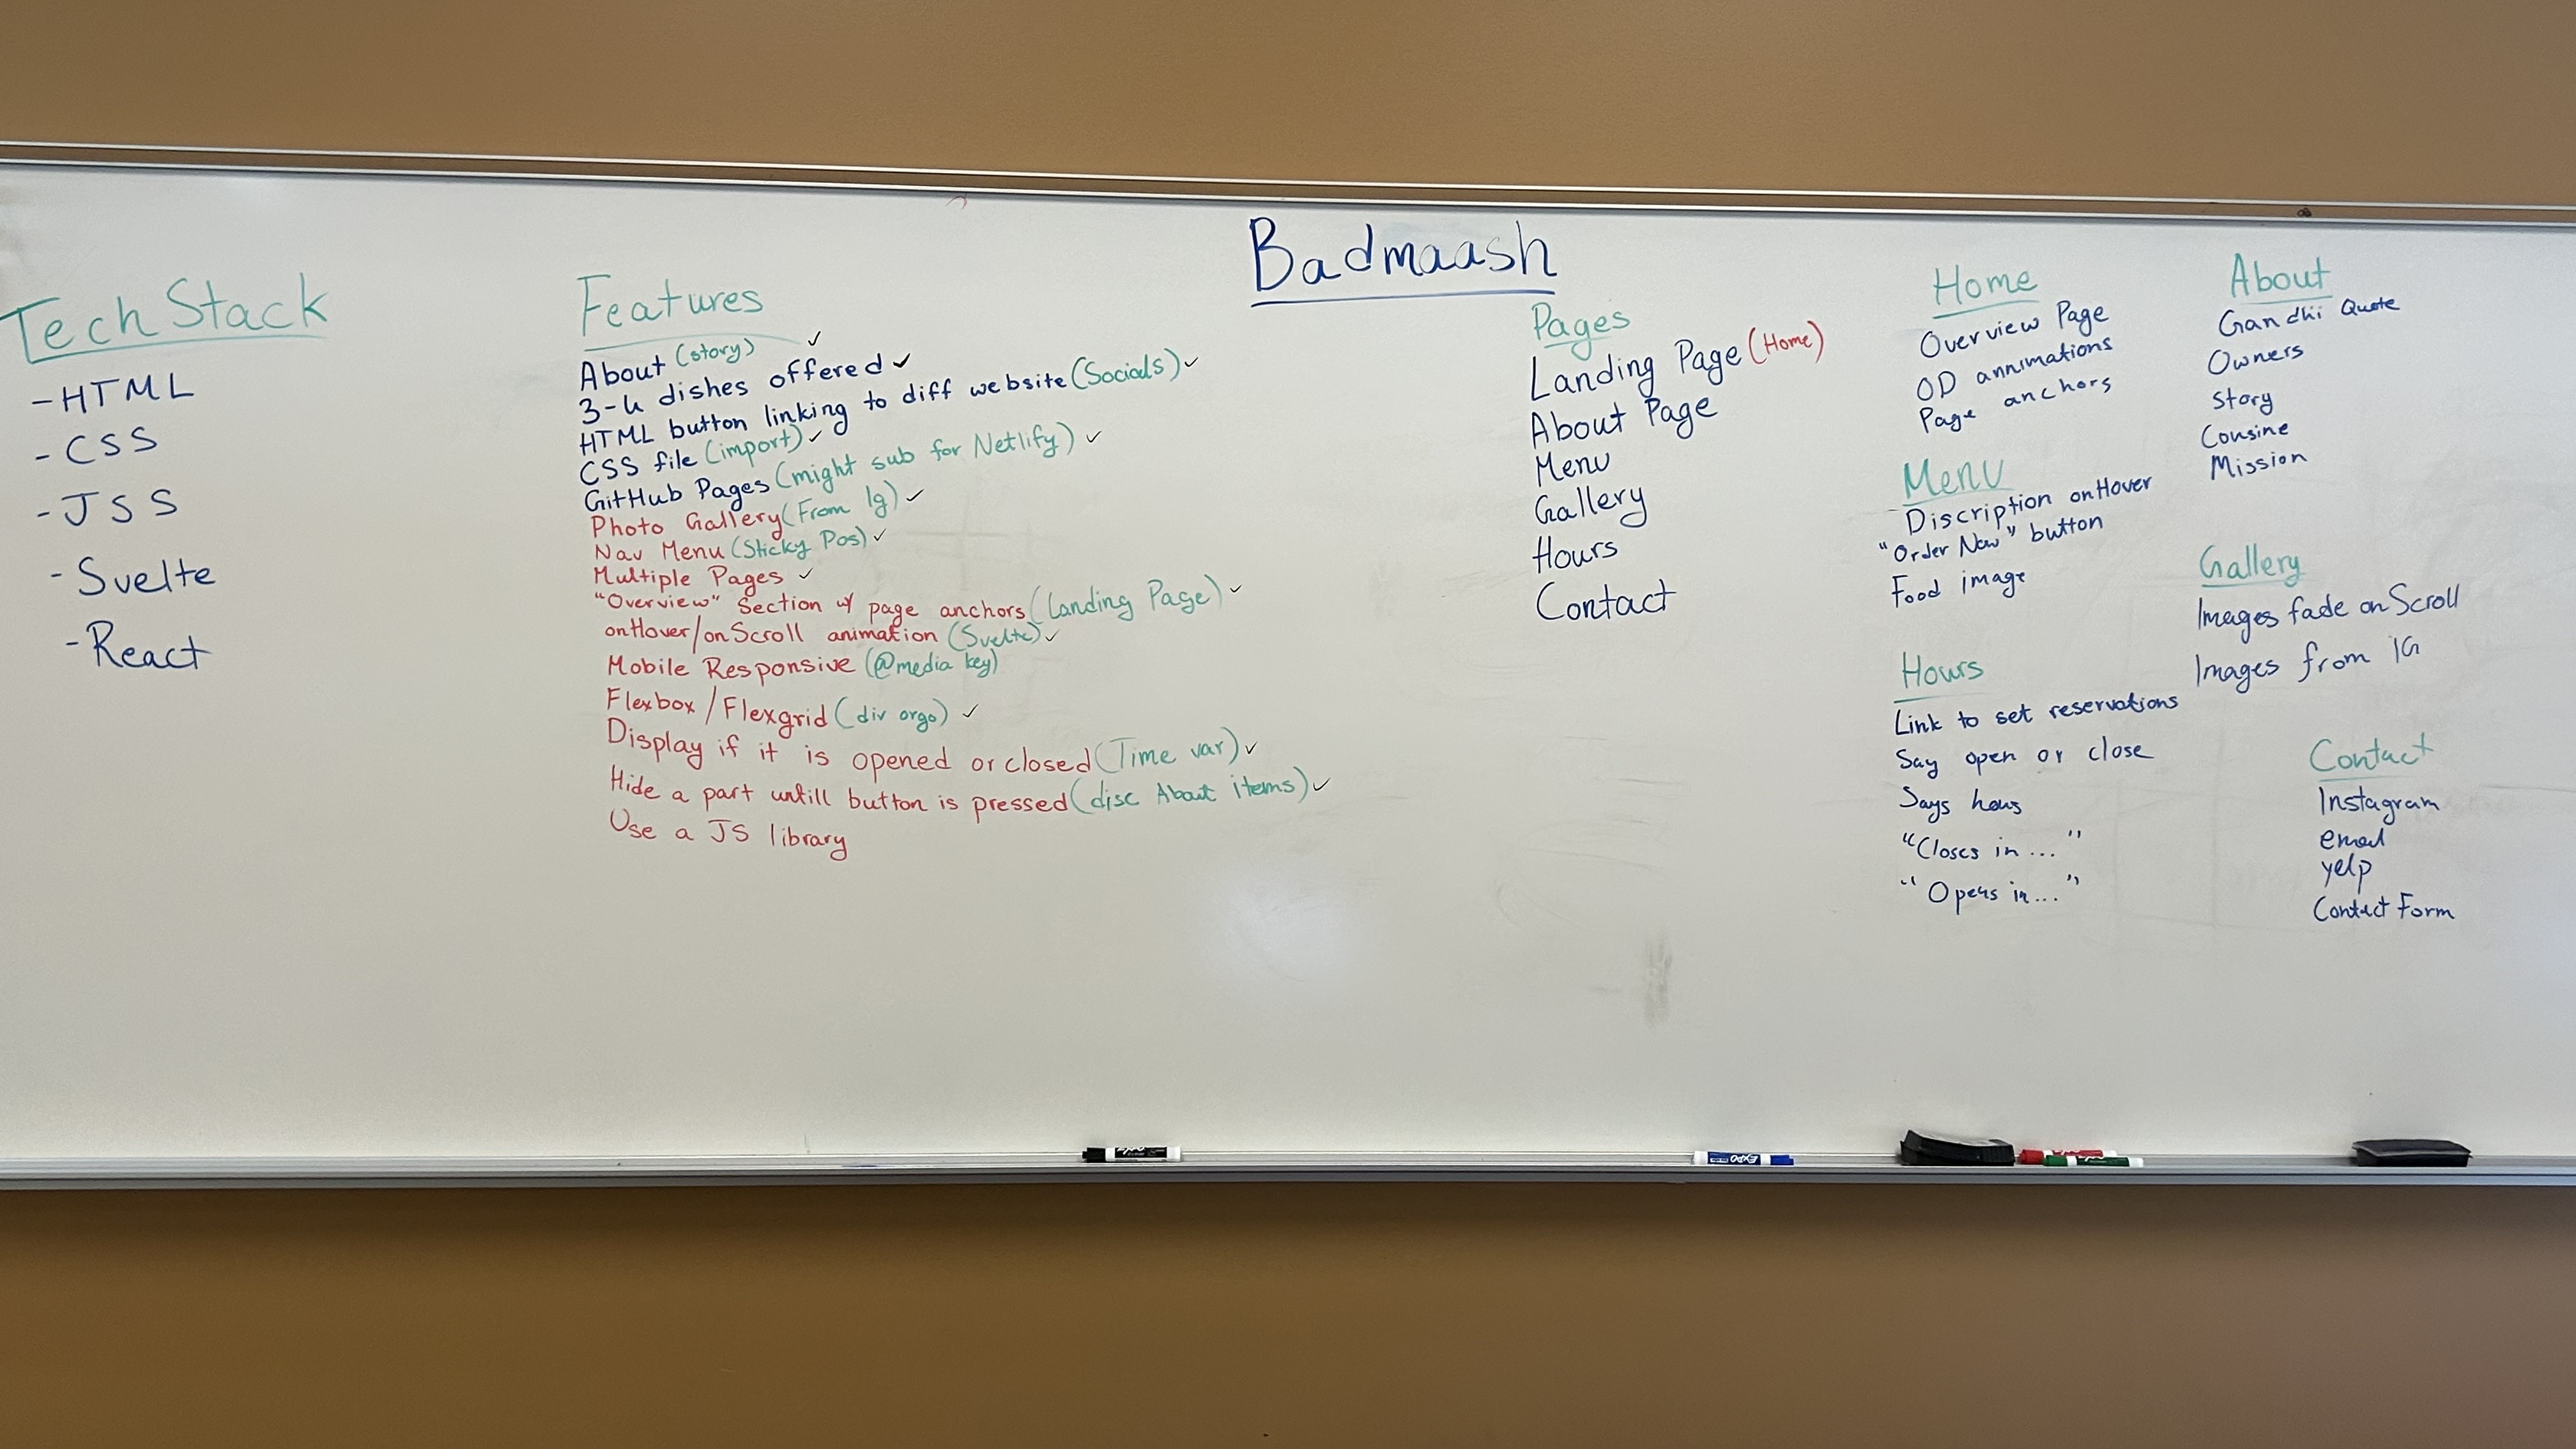 Badmaash
Tech Stack
- HTML
- CSS
- JSS
- Svelte
- React
Features
About (story) ✓
3-4 dishes offered ✓
HTML button linking to diff website (Socials) ✓
CSS file (import) ✓
GitHub Pages (might sub for Netlify) ✓
Photo Gallery (From Ig) ✓
Nav Menu (Sticky Pos) ✓
Multiple Pages ✓
"Overview" Section w/ page anchors (Landing Page) ✓
onHover/onScroll animation (Svelte) ✓
Mobile Responsive (@media key)
Flexbox/Flexgrid (div orgo) ✓
Display if it is opened or closed (Time var) ✓
Hide a part untill button is pressed (disc About items) ✓
Use a JS library
Pages
Landing Page (Home)
About Page
Menu
Gallery
Hours
Contact
Home
Overview Page
OD annimations
Page anchors
Menu
Discription onHover
"Order Now" button
Food image
Hours
Link to set reservations
Say open or close
Says hours
"Closes in ..."
"Opens in..."
About
Gandhi Quote
Owners
Story
Cousine
Mission
Gallery
Images fade on Scroll
Images from IG
Contact
Instagram
email
yelp
Contact Form
EXPO